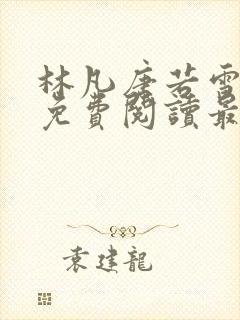 林凡唐若雪
免費閱讀最
袁建龍